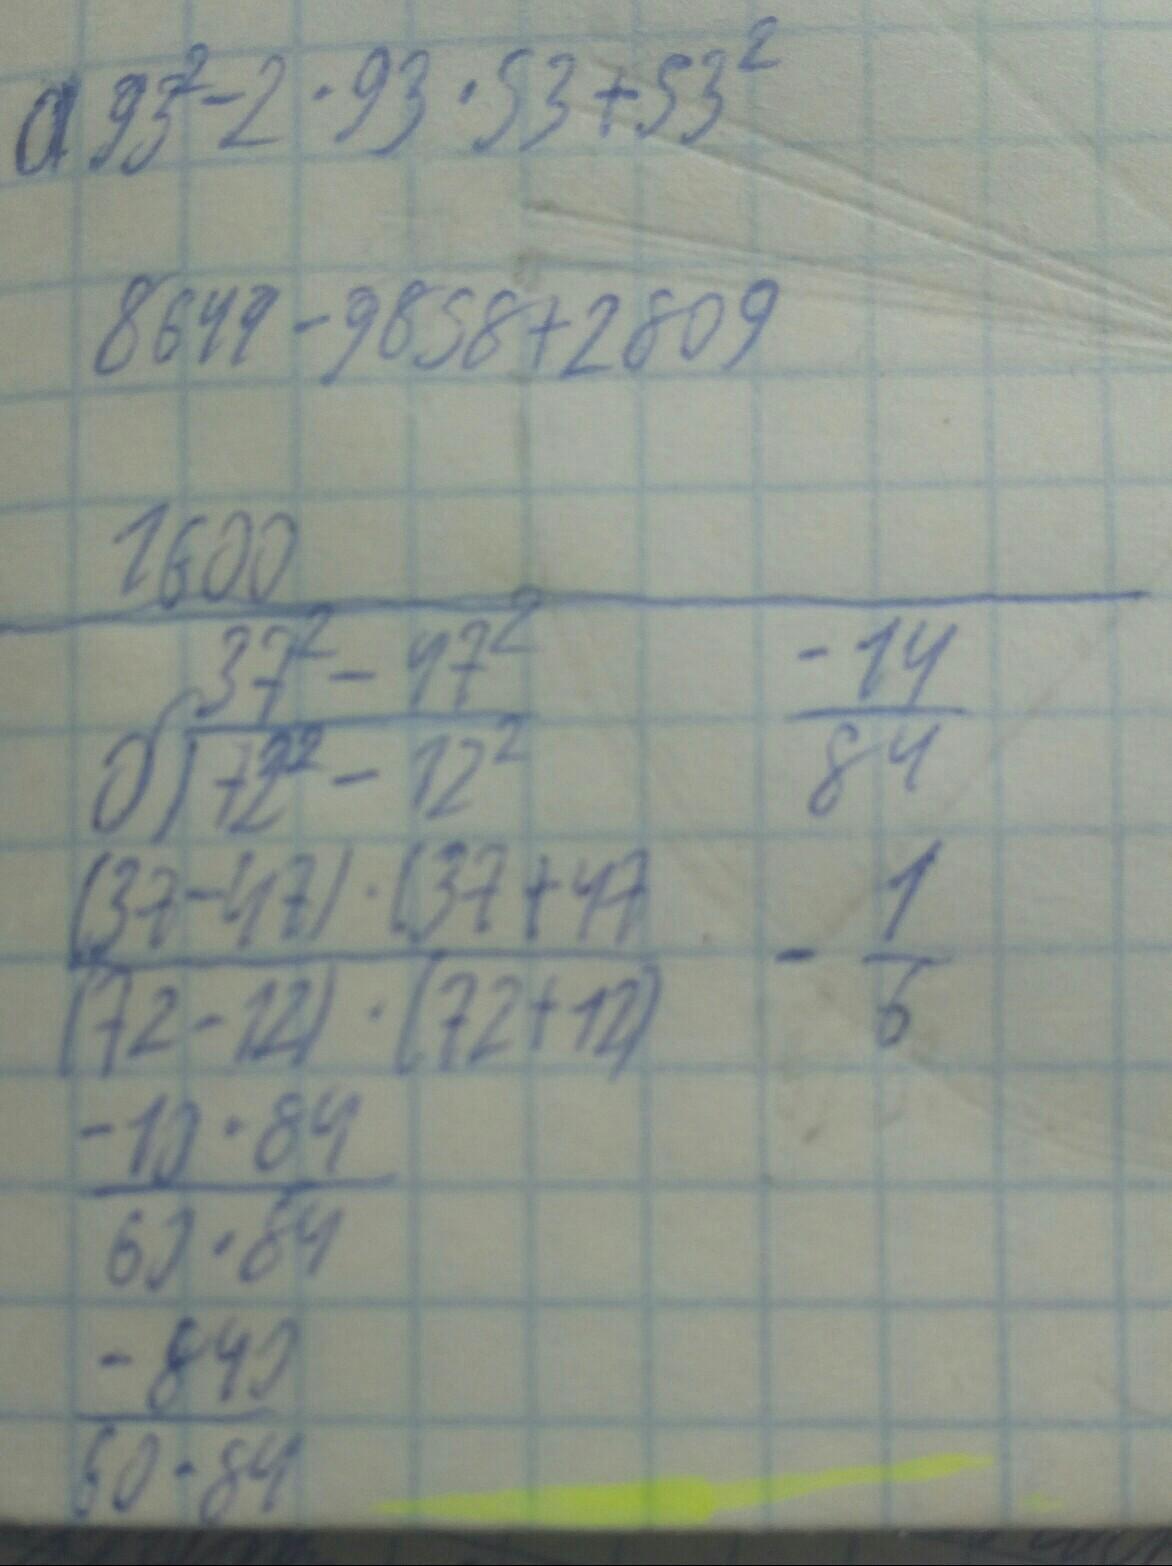 а 93² - 2 · 93 · 53 + 53²
8649 - 9858 + 2809
1600
б) 37² - 47²
72² - 12²
(37 - 47) · (37 + 47
(72 - 12) · (72 + 12)
-10 · 84
60 · 84
-840
60 · 84
-14
84
- 1
6